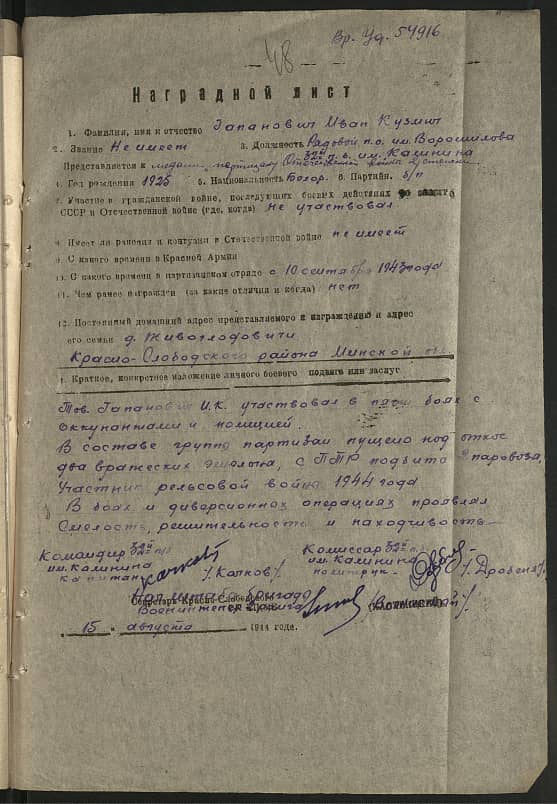 Вр. Уд. 54916
48
Наградной лист
1. Фамилия, имя и отчество Гапанович Иван Кузмич
2. Звание Не имеет 3. Должность Рядовой п.о. им. Ворошилова
Представляется к медали "партизану Отечественной войны II степени" им. Калинина
4. Год рождения 1925 5. Национальность Белор. 6. Партийн. б/п
7. Участие в гражданской войне, последующих боевых действиях по защите
СССР и Отечественной войне (где, когда) не участвовал
8. Имеет ли ранения и контузии в Отечественной войне не имеет
9. С какого времени в Красной Армии
10. С какого времени в партизанском отряде с 10 сентября 1943 года
11. Чем ранее награжден (за какие отличия и когда) нет
12. Постоянный домашний адрес представляемого к награждению и адрес
его семьи д. Живоглодовичи
Красно-Слободского района Минской обл.
1. Краткое, конкретное изложение личного боевого подвига или заслуг
Тов. Гапанович И.К. участвовал в пяти боях с
оккупантами и полицией.
В составе групп партизан пущено под откос
два вражеских эшелона, с ПТР подбито 2 паровоза,
Участник рельсовой войны 1944 года
В боях и диверсионных операциях проявлял
Смелость, решительность и находчивость
Командир 32й п/о Комиссар 32й п.о.
им. Калинина им. Калинина
капитан /Капков/ политрук /Дробеня/
Нач. штаба бригады
Секретарь Красно-Слободского
Военинженер 3 ранга
15 августа 1944 года.